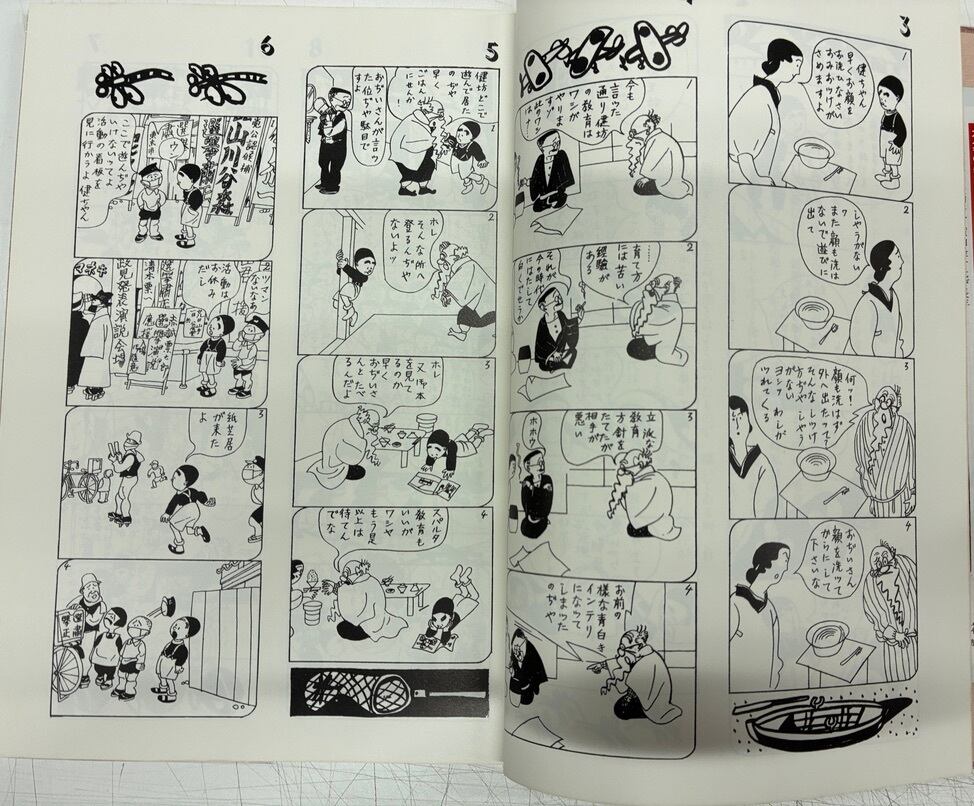 3
1
健ちやん
早くお顔を
お洗ひなさい
おみおつけが
さめますよ
2
しやうがない
ワ
また顔も洗は
ないで遊びに
出て
3
何ッ!
顔も洗はず
外へ出たッて?
そんなしつけ
方ぢやしやう
がない
ヨシッわしが
つれてくる
4
おぢいさん
顔を洗ッて
からにして
下さいな
1
今も
言ッた
通り健坊
の教育は
ワシが
やりま
すゾ
此のワシ
は!
2
……
育て方
には苦い
経験が
ある
それが
今の時代
3
立派な
教育
方針を
たてたが
相手が
悪い
ホホウ
4
お前の
様な青白き
インテリ
になッて
しまッた
のぢや
5
1
健坊どこで
遊んで居た
のぢや
早く
ごはん
にせんか
!
おぢいさんが言ッ
た位ぢや駄目で
すよ
2
ホレ
そんな所へ
登るんぢや
ないよッ
3
ホレ
又御本
を見て
るのか
早く
おぢいさ
んとたべ
るんだよ
4
スパルタ
教育も
いいが
ワシや
もう是
以上は
待てん
でな
6
公認候補
山川谷蔵
ウ
ここで遊んぢや
いけないッてよ
活動の看板を
見に行かうよ健ちやん
2
マネキ
政見発表演説会場
清水粟一
活動は
お休み
だし
3
紙芝居
が来た
よ
4
選挙
粛正